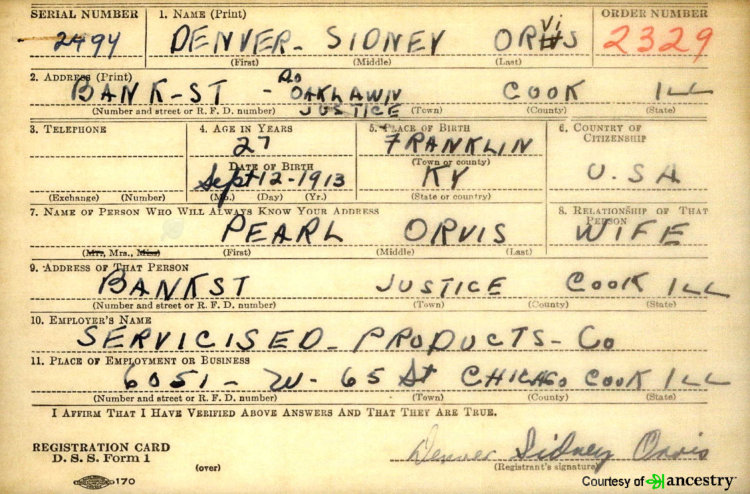 SERIAL NUMBER 1. NAME (Print) ORDER NUMBER
2494 DENVER- SIDNEY ORViS 2329
(First) (Middle) (Last)
2. ADDRESS (Print)
BANK-ST - Po OAKLAWN COOK ILL
JUSTICE
(Number and street or R. F. D. number) (Town) (County) (State)
3. TELEPHONE 4. AGE IN YEARS 5. PLACE OF BIRTH 6. COUNTRY OF CITIZENSHIP
27 FRANKLIN
(Town or county)
DATE OF BIRTH
Sept 12-1913 KY U.S.A
(Exchange) (Number) (Mo.) (Day) (Yr.) (State or country)
7. NAME OF PERSON WHO WILL ALWAYS KNOW YOUR ADDRESS 8. RELATIONSHIP OF THAT PERSON
PEARL ORVIS WIFE
(Mr., Mrs., Miss) (First) (Middle) (Last)
9. ADDRESS OF THAT PERSON
BANKST JUSTICE COOK ILL
(Number and street or R. F. D. number) (Town) (County) (State)
10. EMPLOYER'S NAME
SERVICISED- PRODUCTS- Co
11. PLACE OF EMPLOYMENT OR BUSINESS
6051- W- 65 St CHICAGO COOK ILL
(Number and street or R. F. D. number) (Town) (County) (State)
I AFFIRM THAT I HAVE VERIFIED ABOVE ANSWERS AND THAT THEY ARE TRUE.
REGISTRATION CARD
D. S. S. Form 1 (over)
Denver Sidney Orvis
(Registrant's signature)
170
Courtesy of ancestry